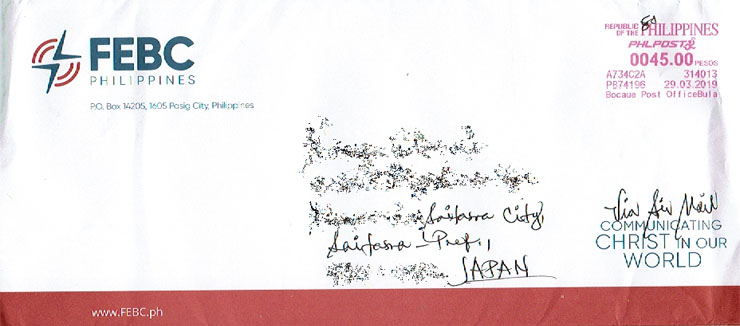 FEBC
PHILIPPINES
P.O. Box 14205, 1605 Pasig City, Philippines
REPUBLIC OF THE PHILIPPINES
PHLPOST
0045.00 PESOS
A734C2A 314013
PB74196 29.03.2019
Bocaue Post OfficeBula
Saitama City,
Saitama-Pref.,
JAPAN
Via Air Mail
COMMUNICATING
CHRIST IN OUR
WORLD
www.FEBC.ph